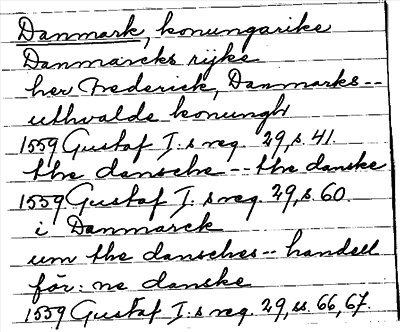 Danmark, konungarike
Danmarcks rijke
her Frederick, Danmarks--
uthvalde konungh
1559 Gustaf I:s reg. 29, s. 41.
the dansche -- the danske
1559 Gustaf I:s reg. 29, s. 60.
i Danmarck
um the dansches -- handell
för: ne danske
1559 Gustaf I:s reg. 29, ss. 66, 67.